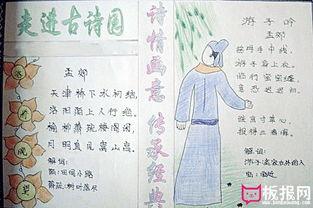 走进古诗园
孟郊
天津桥下冰初结
洛阳陌上人行绝
榆柳萧疏楼阁闲
月明直见嵩山雪
解词:
陌:田间小路
萧疏:树叶落尽
诗情画意
传承经典
游子吟
孟郊
慈母手中线
游子身上衣
临行密密缝
意恐迟迟归
谁言寸草心
报得三春晖
解词:
板报网